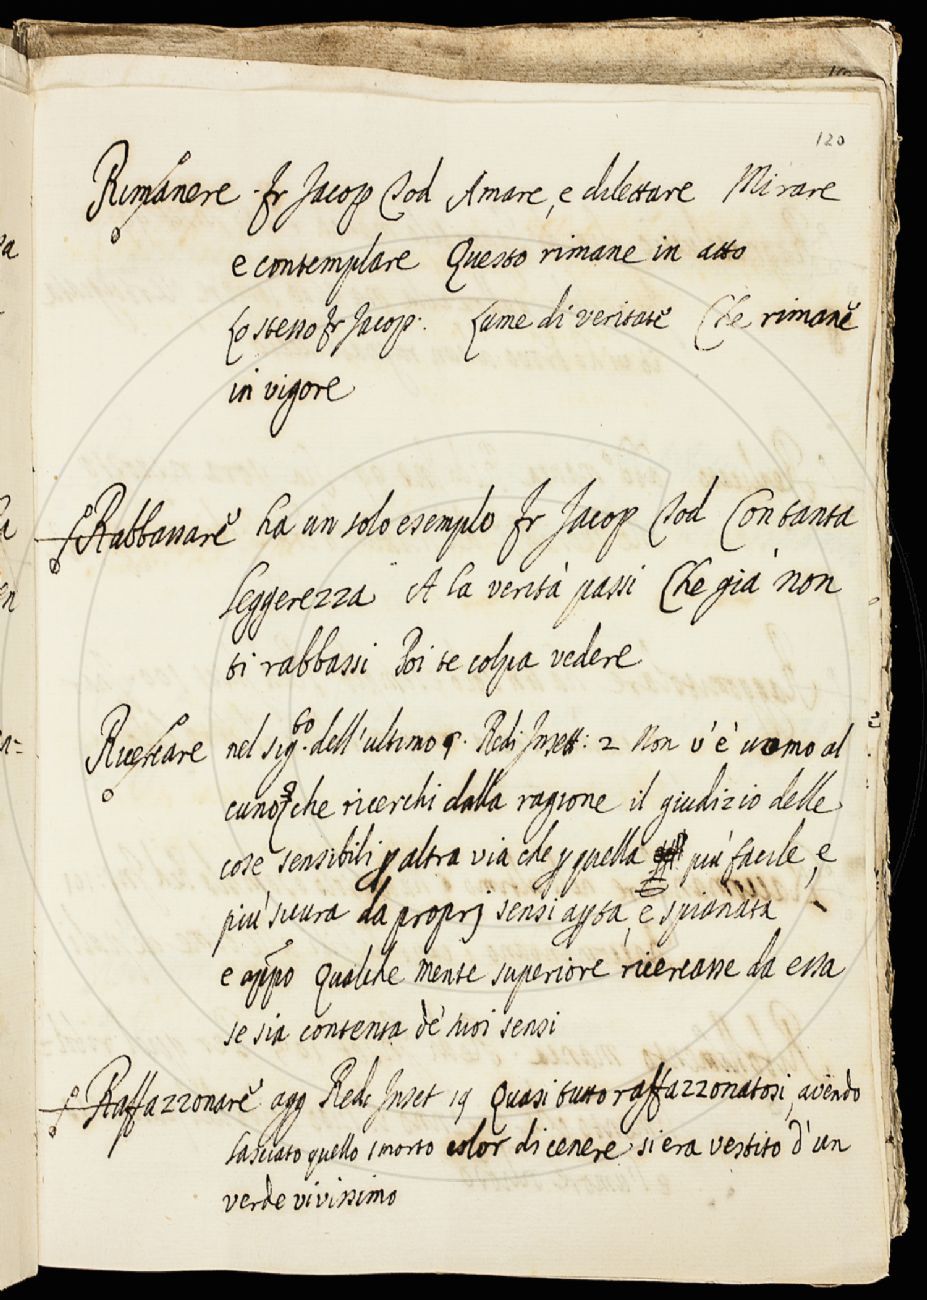 120
Rimanere fr Jacop Tod Amare, e dilettare Mirare
e contemplare Questo rimane in atto
Lo stesso fr Jacop. Lume di veritate Che rimane
in vigore
Rabbassare ha un solo esemplo fr Jacop Tod Con tanta
leggerezza A la verità passi Che già non
ti rabbassi Poi te colpa vedere
Ricercare nel sig.to dell'ultimo §. Redi Inset: 2 Non v'è uomo al
cuno che ricerchi dalla ragione il giudizio delle
cose sensibili p altra via che p quella più facile, e
più sicura da proprj sensi apta, e spianata
e appo Qualche mente superiore ricercasse da essa
se sia contenta de' suoi sensi
Raffazzonare agg Redi Inset 19 Quasi tutto raffazzonatosi, avendo
lasciato quello smorto color di cenere si era vestito d'un
verde vivissimo